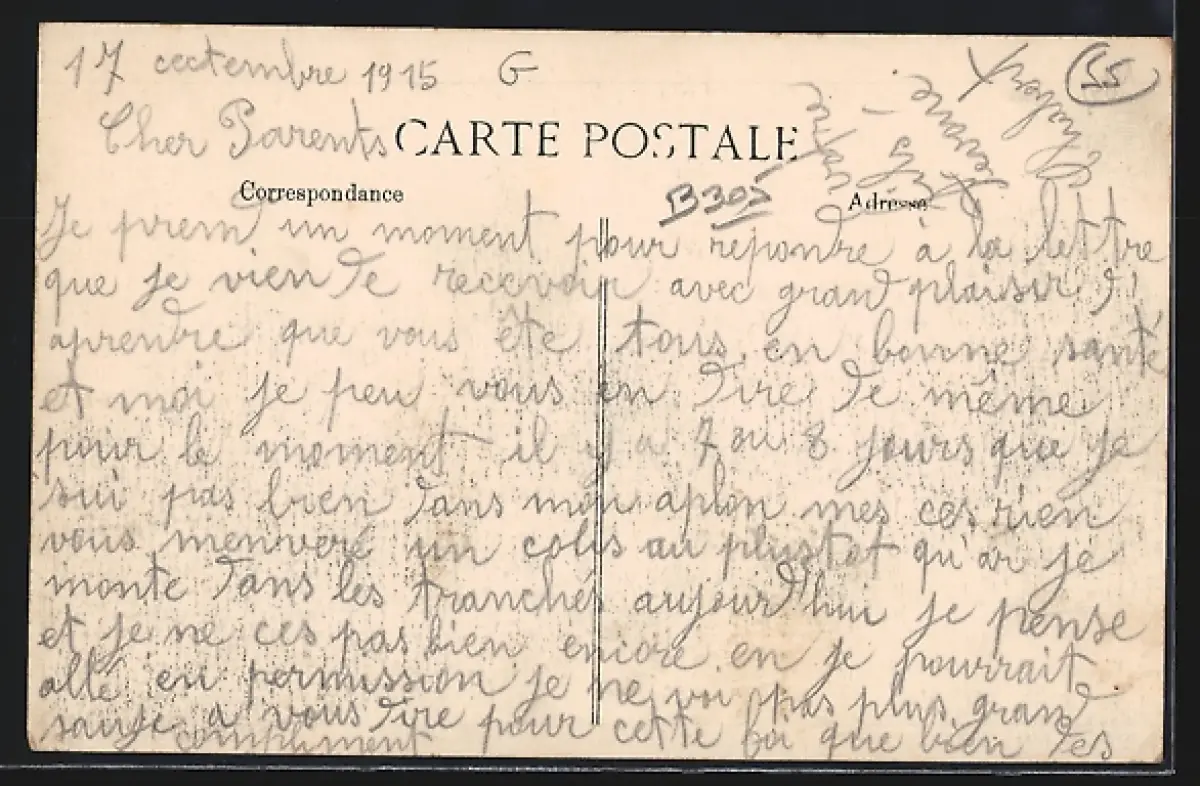 17 cectembre 1915 G
55
Cher Parents
CARTE POSTALE
Correspondance
B305
Adresse
Je prend un moment pour repondre à la lettre
que je vien de recevoir avec grand plaisir d'
aprendre que vous ête tous en bonne santé
et moi je peu vous en dire de même
pour le moment il y a 7 ou 8 jours que je
sui pas bien dans mon aplon mes ces rien
vous menveré un colis au plustot qu'ar je
monte dans les tranchés aujourd'hui je pense
et je ne ces pas bien encore en je pourrait
allé en permission je ne voi pas plus grand
a vous dire pour cette foi que bien des
compliment